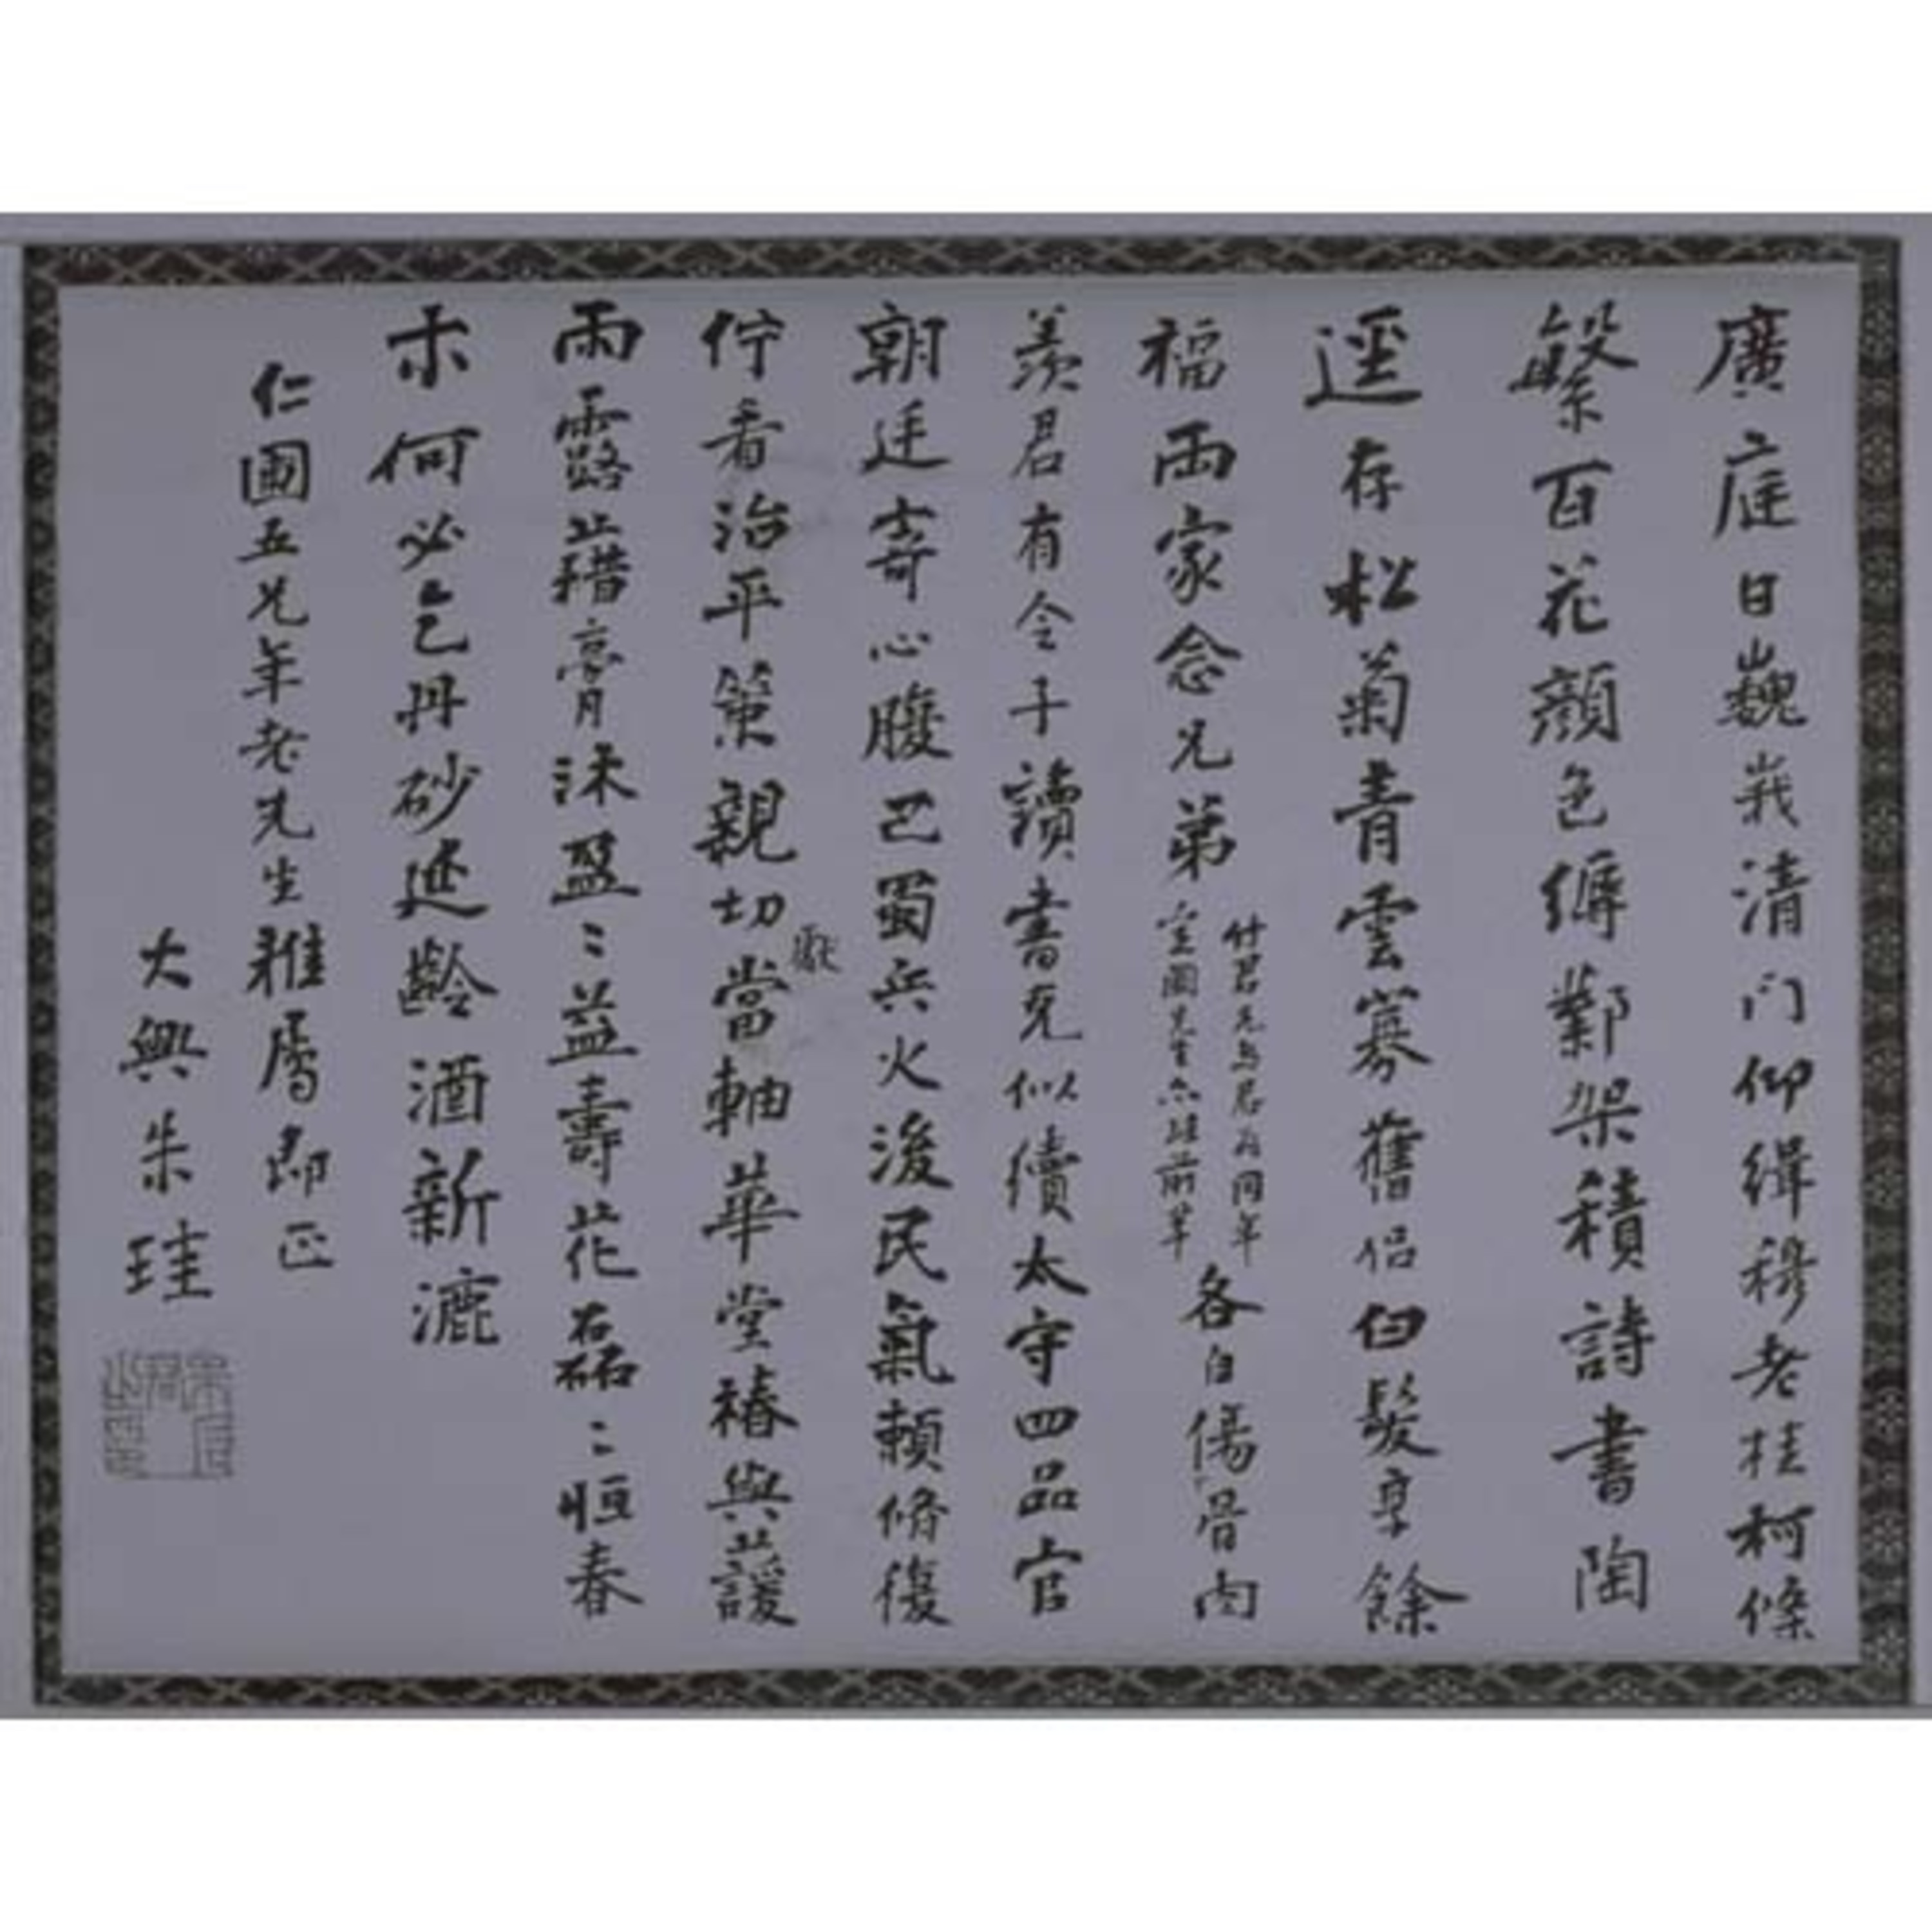 廣庭日巍峩清門仰緝穆老桂柯條
繁百花顏色縟鄴架積詩書陶
逕存松菊青雲寡舊侶白髮享餘
福兩家念兄弟
竹君兄與君为同年
空圃先生亦珪前輩
各自傷骨肉
羨君有令子讀書克似續太守四品官
朝廷寄心腹巴蜀兵火後民氣賴脩復
佇看治平策親切當軸華堂椿與萱
獻
雨露藉膏沐盈盈益壽花磊磊恒春
木何必乞丹砂延齡酒新漉
仁圃五兄年老先生雅属即正
大興朱珪